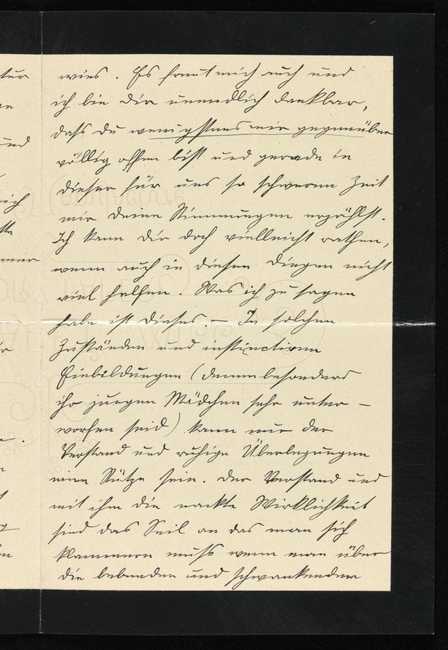 wies. Es freut mich auch und
ich bin dir unendlich dankbar,
dass du wenigstens mir gegenüber
völlig offen bist und gerade in
dieser für uns so schweren Zeit
mir deine Stimmungen erzählst.
Ich kann dir doch vielleicht rathen,
wenn auch in diesen Dingen nicht
viel helfen. Was ich zu sagen
habe ist dieses – In solchen
Zuständen und instinctiven
Einbildungen (denen besonders
ihr jungen Mädchen sehr unter-
worfen seid) kann nur der
Verstand und ruhige Überlegungen
eine Stütze sein. Der Verstand und
mit ihm die nackte Wirklichkeit
sind das Seil an das man sich
klammern muss wenn man über
die bebenden und schwankenden